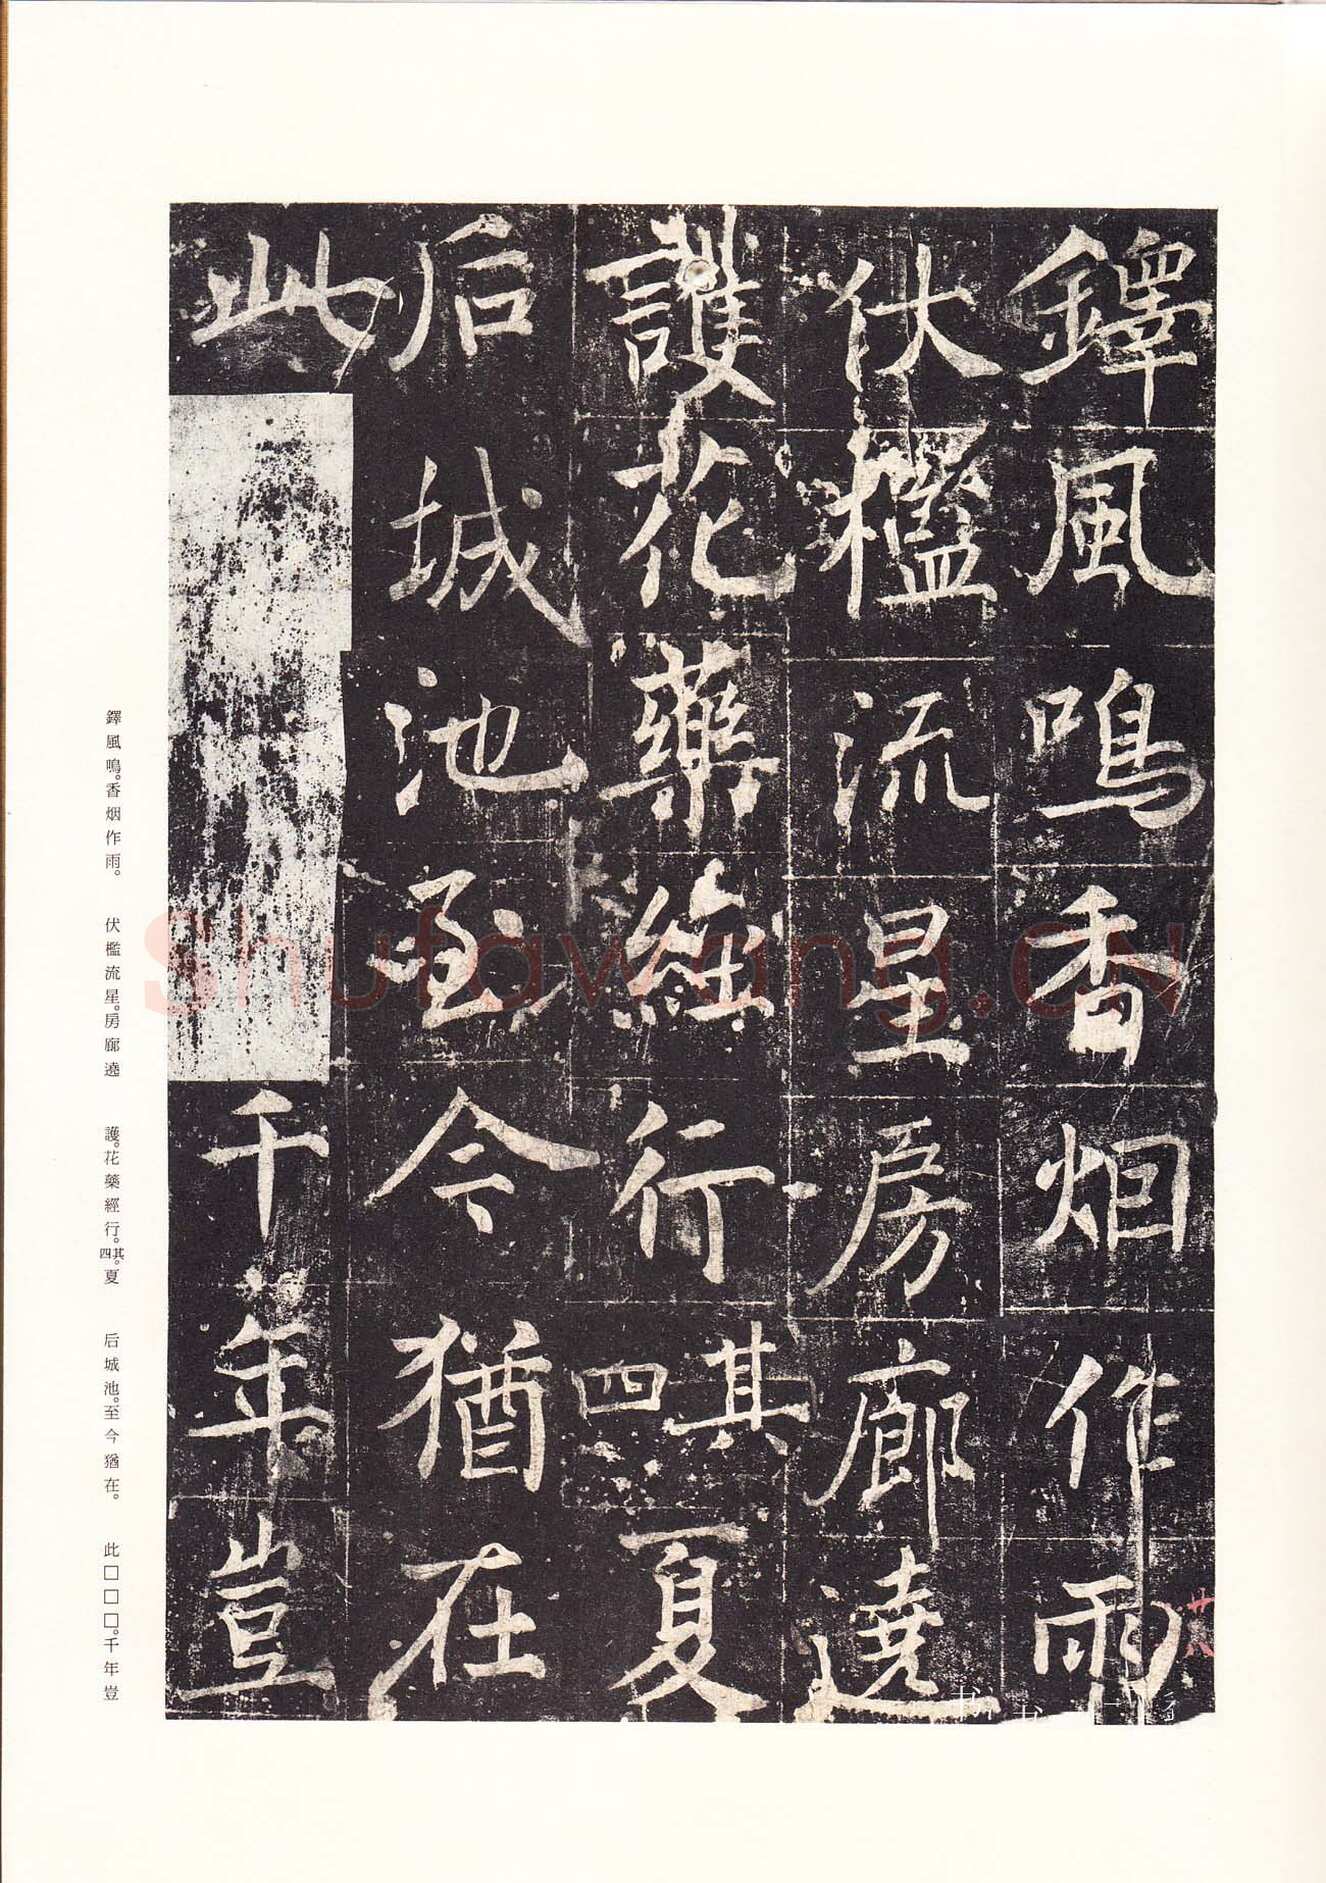 鐸風鳴香烟作雨
伏檻流星房廊遶
護花藥經行其四夏
后城池至今猶在
此千年豈
鐸風鳴。香烟作雨。 伏檻流星。房廊遶 護。花藥經行。其四。夏 后城池。至今猶在。 此□□□。千年豈
Shufawang.CN